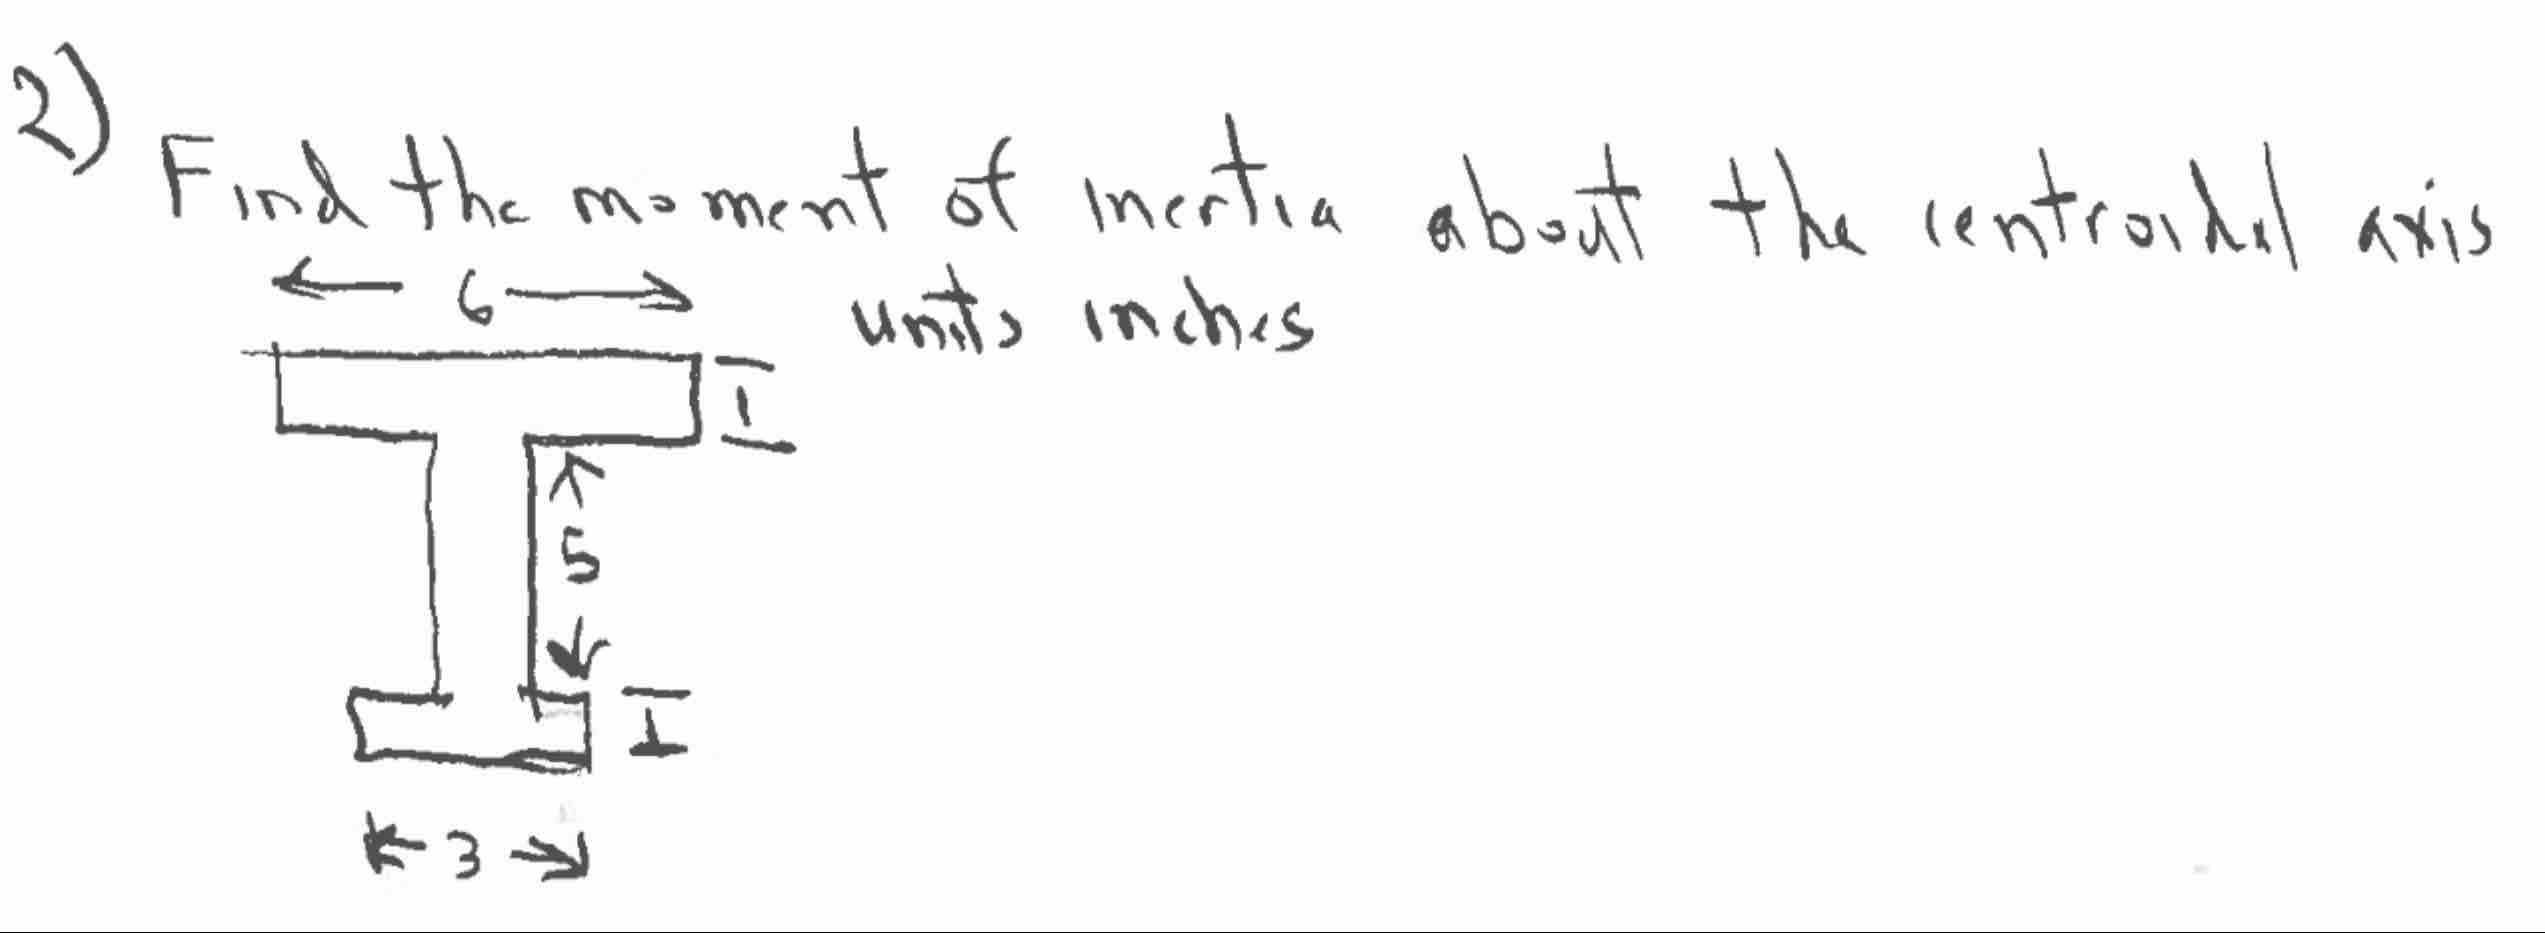 2)
Find the moment of inertia about the centroidal axis
units inches
6
1
5
1
3